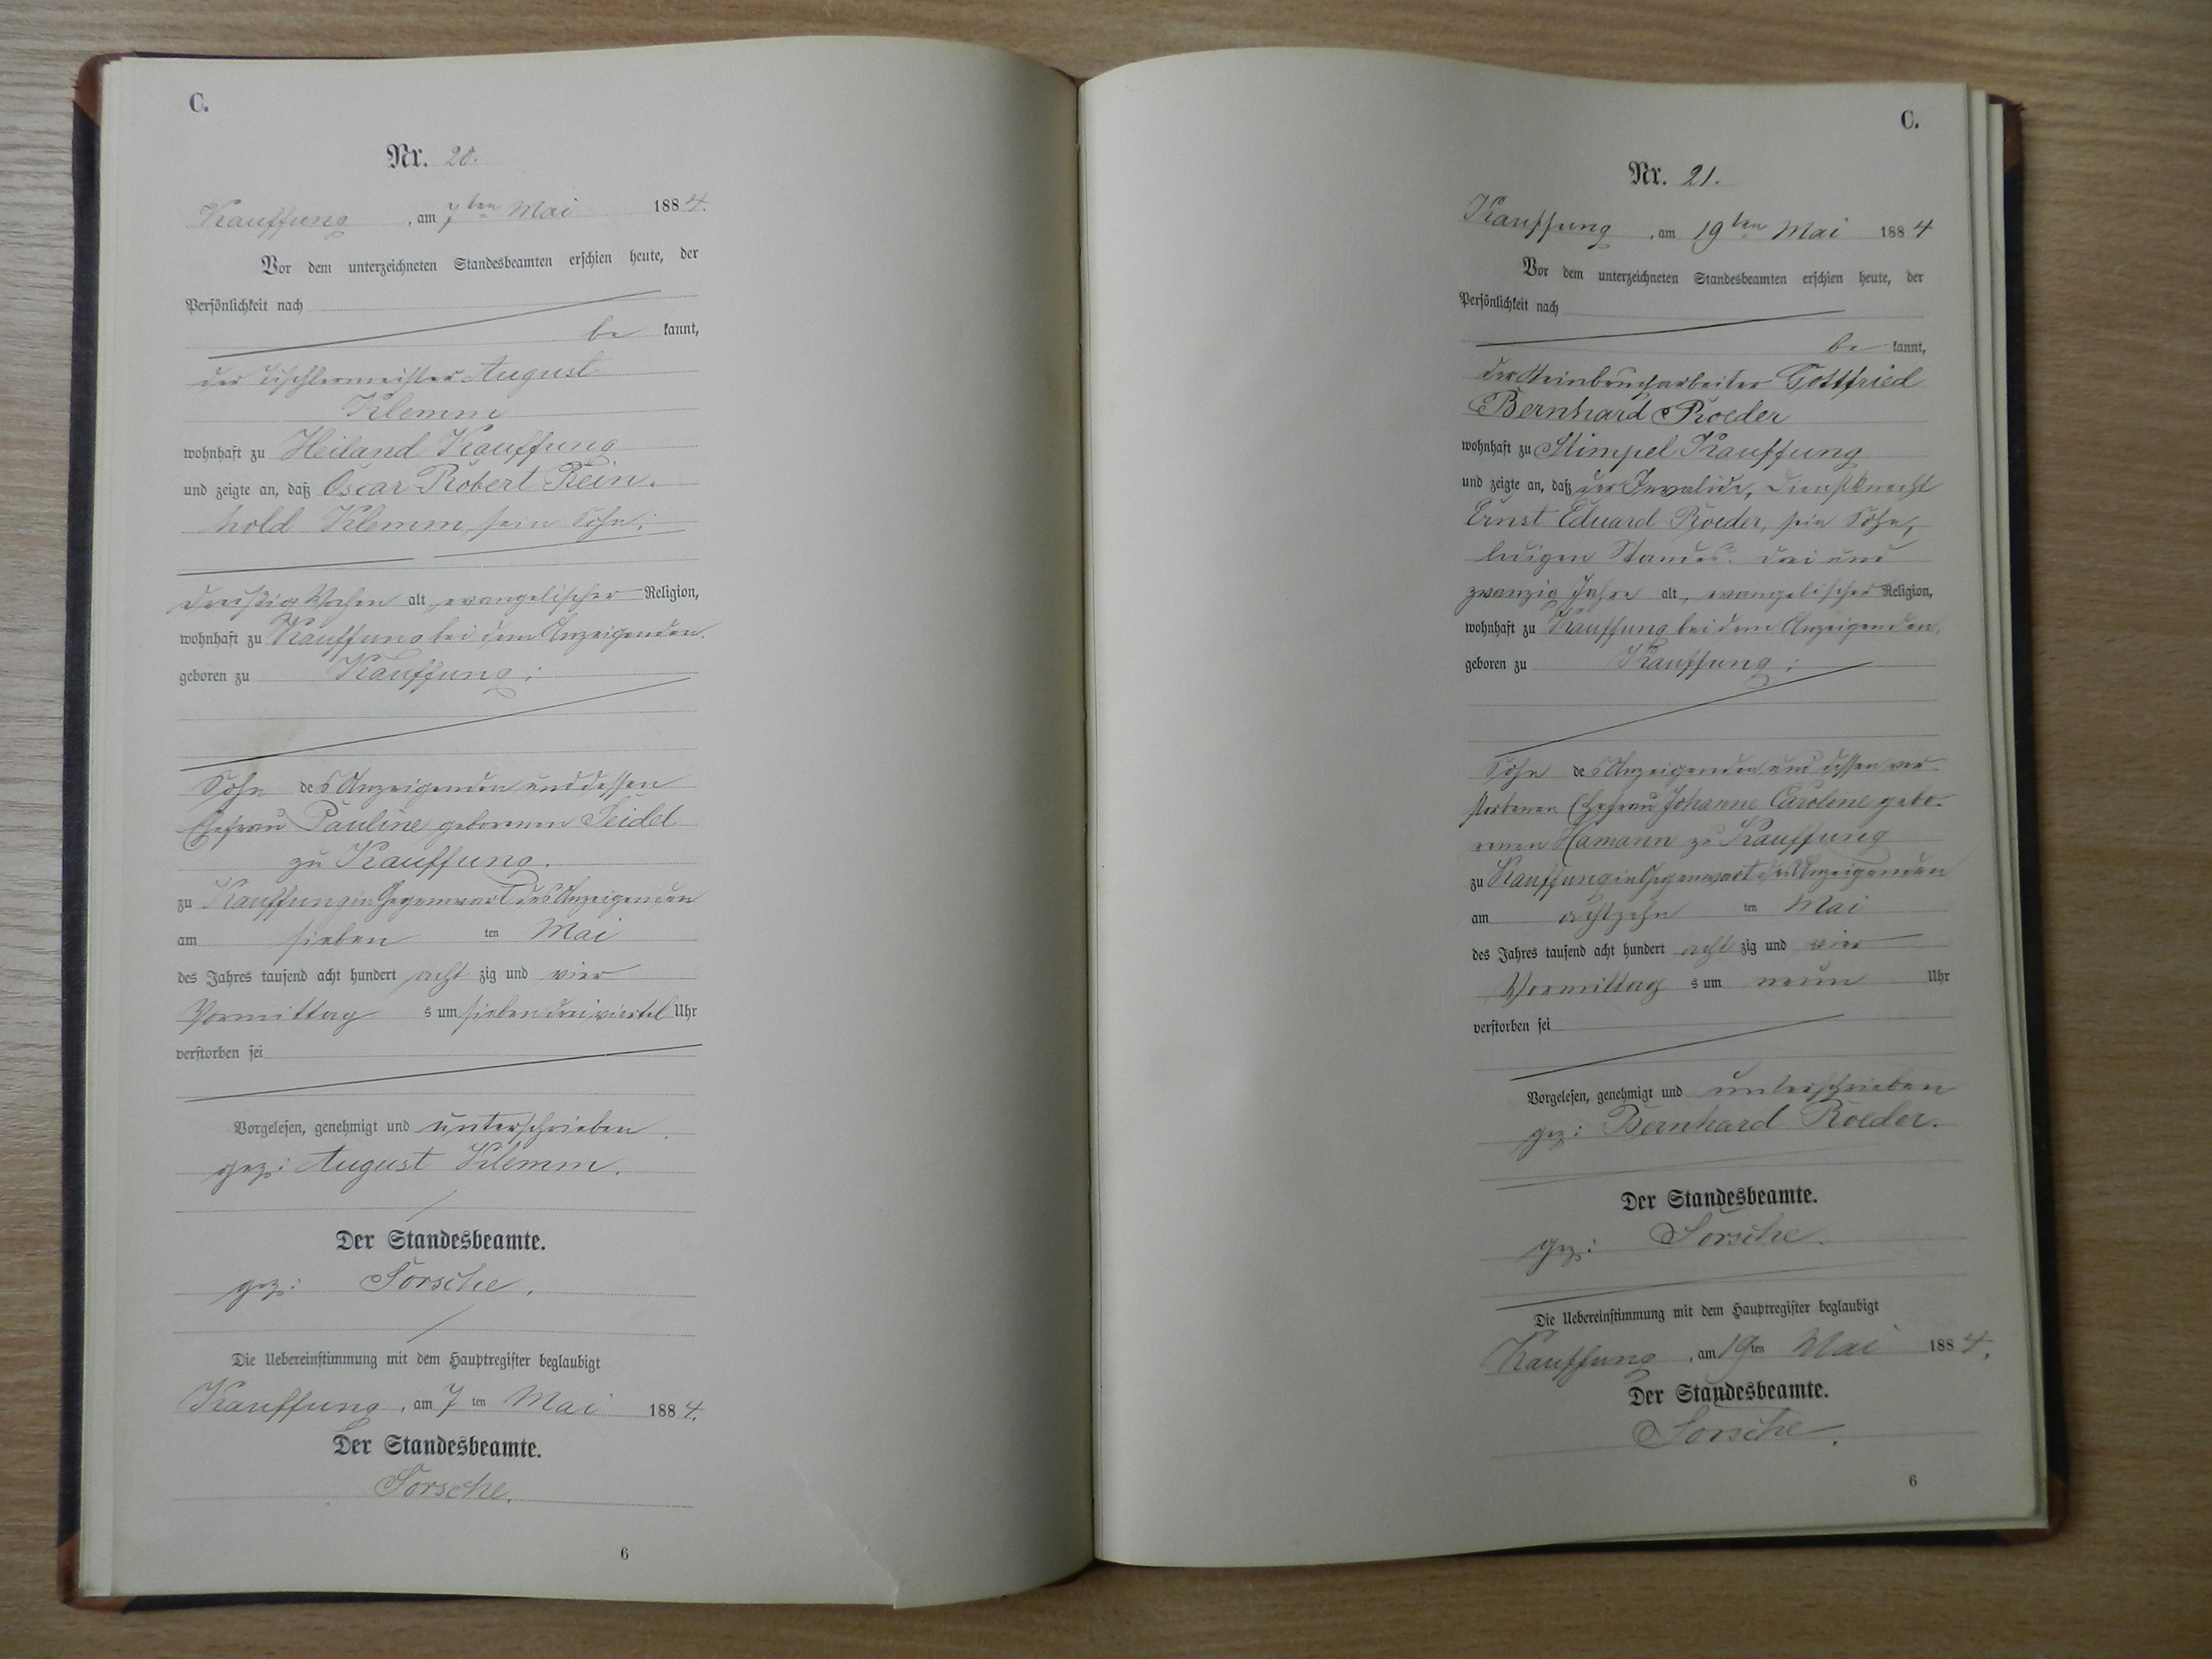 C.
Nr. 20.
Kauffung, am 7ten Mai 1884.
Vor dem unterzeichneten Standesbeamten erschien heute, der
Persönlichkeit nach
be kannt,
der Tischlermeister August
Klemm
wohnhaft zu Heiland Kauffung
und zeigte an, daß Oscar Robert Rein-
hold Klemm, sein Sohn,
dreißig Wochen alt, evangelischer Religion,
wohnhaft zu Kauffung bei dem Anzeigenden.
geboren zu Kauffung;
Sohn des Anzeigenden und dessen
Ehefrau Pauline geborenen Seidel
zu Kauffung.
zu Kauffung in Gegenwart des Anzeigenden
am sieben ten Mai
des Jahres tausend acht hundert acht zig und vier
Vormittag s um sieben dreiviertel Uhr
verstorben sei
Vorgelesen, genehmigt und unterschrieben.
gez: August Klemm.
Der Standesbeamte.
gez: Sorsche.
Die Uebereinstimmung mit dem Hauptregister beglaubigt
Kauffung, am 7ten Mai 1884.
Der Standesbeamte.
Sorsche.
6
C.
Nr. 21.
Kauffung, am 19ten Mai 1884
Vor dem unterzeichneten Standesbeamten erschien heute, der
Persönlichkeit nach
be kannt,
der Steinbrucharbeiter Gottfried
Bernhard Roeder
wohnhaft zu Stimpel Kauffung
und zeigte an, daß der Invalide, Dienstknecht
Ernst Eduard Roeder, sein Sohn,
ledigen Standes. drei und
zwanzig Jahre alt, evangelischer Religion,
wohnhaft zu Kauffung bei dem Anzeigenden,
geboren zu Kauffung;
Sohn des Anzeigenden und dessen ver-
storbenen Ehefrau Johanne Caroline gebo-
renen Hamann zu Kauffung
zu Kauffung in Gegenwart des Anzeigenden
am achtzehn ten Mai
des Jahres tausend acht hundert acht zig und vier
Vormittag s um neun Uhr
verstorben sei
Vorgelesen, genehmigt und unterschrieben
gez: Bernhard Roeder.
Der Standesbeamte.
gez: Sorsche.
Die Uebereinstimmung mit dem Hauptregister beglaubigt
Kauffung, am 19ten Mai 1884.
Der Standesbeamte.
Sorsche.
6